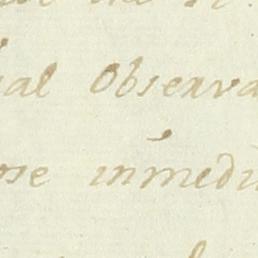 al Observa
ose inmedi